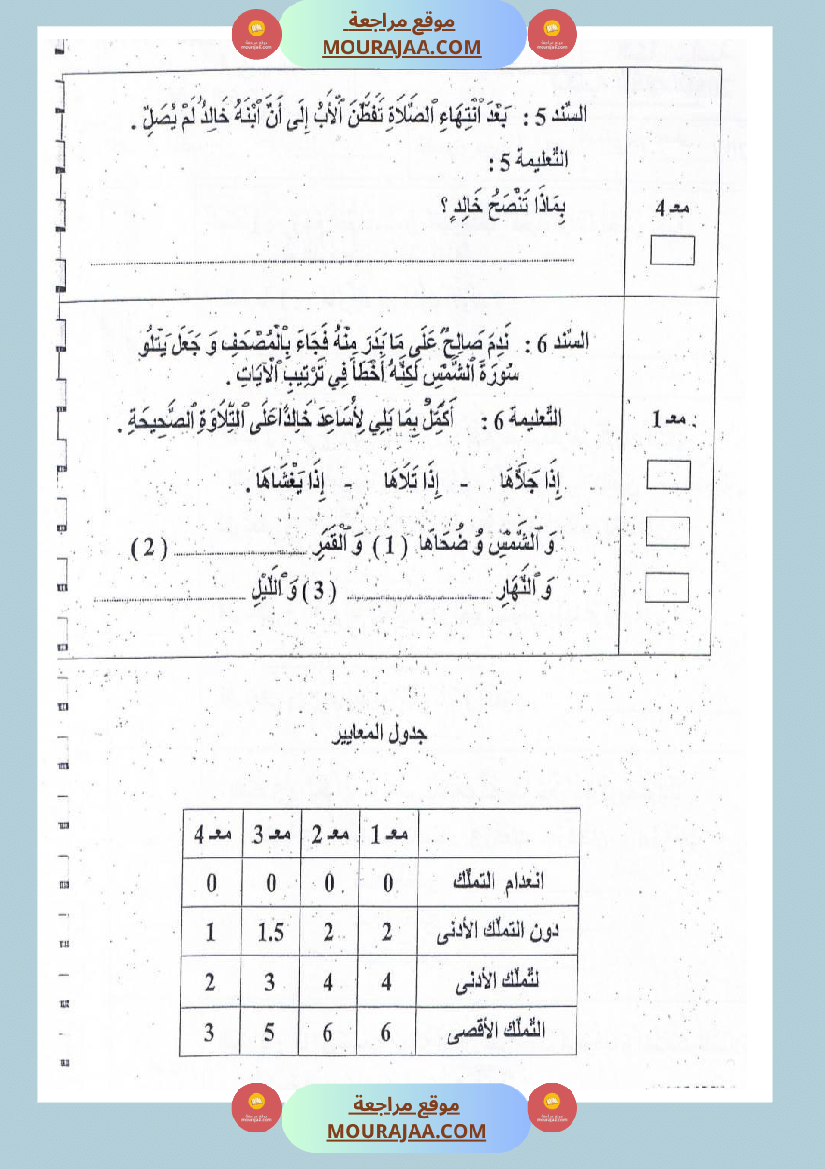 موقع مراجعة
MOURAJAA.COM
السّند 5 : بَعْدَ ٱنْتِهَاءِ ٱلصَّلَاةِ تَفَطَّنَ ٱلْأَبُ إِلَى أَنَّ ٱبْنَهُ خَالِدٌ لَمْ يُصَلِّ .
التّعليمة 5 :
مـعـ 4
بِمَاذَا تَنْصَحُ خَالِدٍ ؟
السّند 6 : نَدِمَ صَالِحٌ عَلَى مَا بَدَرَ مِنْهُ فَجَاءَ بِٱلْمُصْحَفِ وَ جَعَلَ يَتْلُو
سُورَةَ ٱلشَّمْسِ لَكِنَّهُ أَخْطَأَ فِي تَرْتِيبِ ٱلْآيَاتِ .
مـعـ 1
التّعليمة 6 : أُكَمِّلُ بِمَا يَلِي لِأُسَاعِدَ خَالِدًا عَلَى ٱلتِّلَاوَةِ ٱلصَّحِيحَةِ .
إِذَا جَلَّاهَا - إِذَا تَلَاهَا - إِذَا يَغْشَاهَا .
وَ ٱلشَّمْسِ وُ ضُحَاهَا (1) وَ ٱلْقَمَرِ .......... (2)
وَ ٱلنَّهَارِ .......... (3) وَ ٱللَّيْلِ ..........
جدول المعايير
مـعـ 1 مـعـ 2 مـعـ 3 مـعـ 4
انعدام التملّك 0 0 0 0
دون التملّك الأدنى 2 2 1.5 1
لتّملّك الأدنى 4 4 3 2
التّملّك الأقصى 6 6 5 3
موقع مراجعة
MOURAJAA.COM